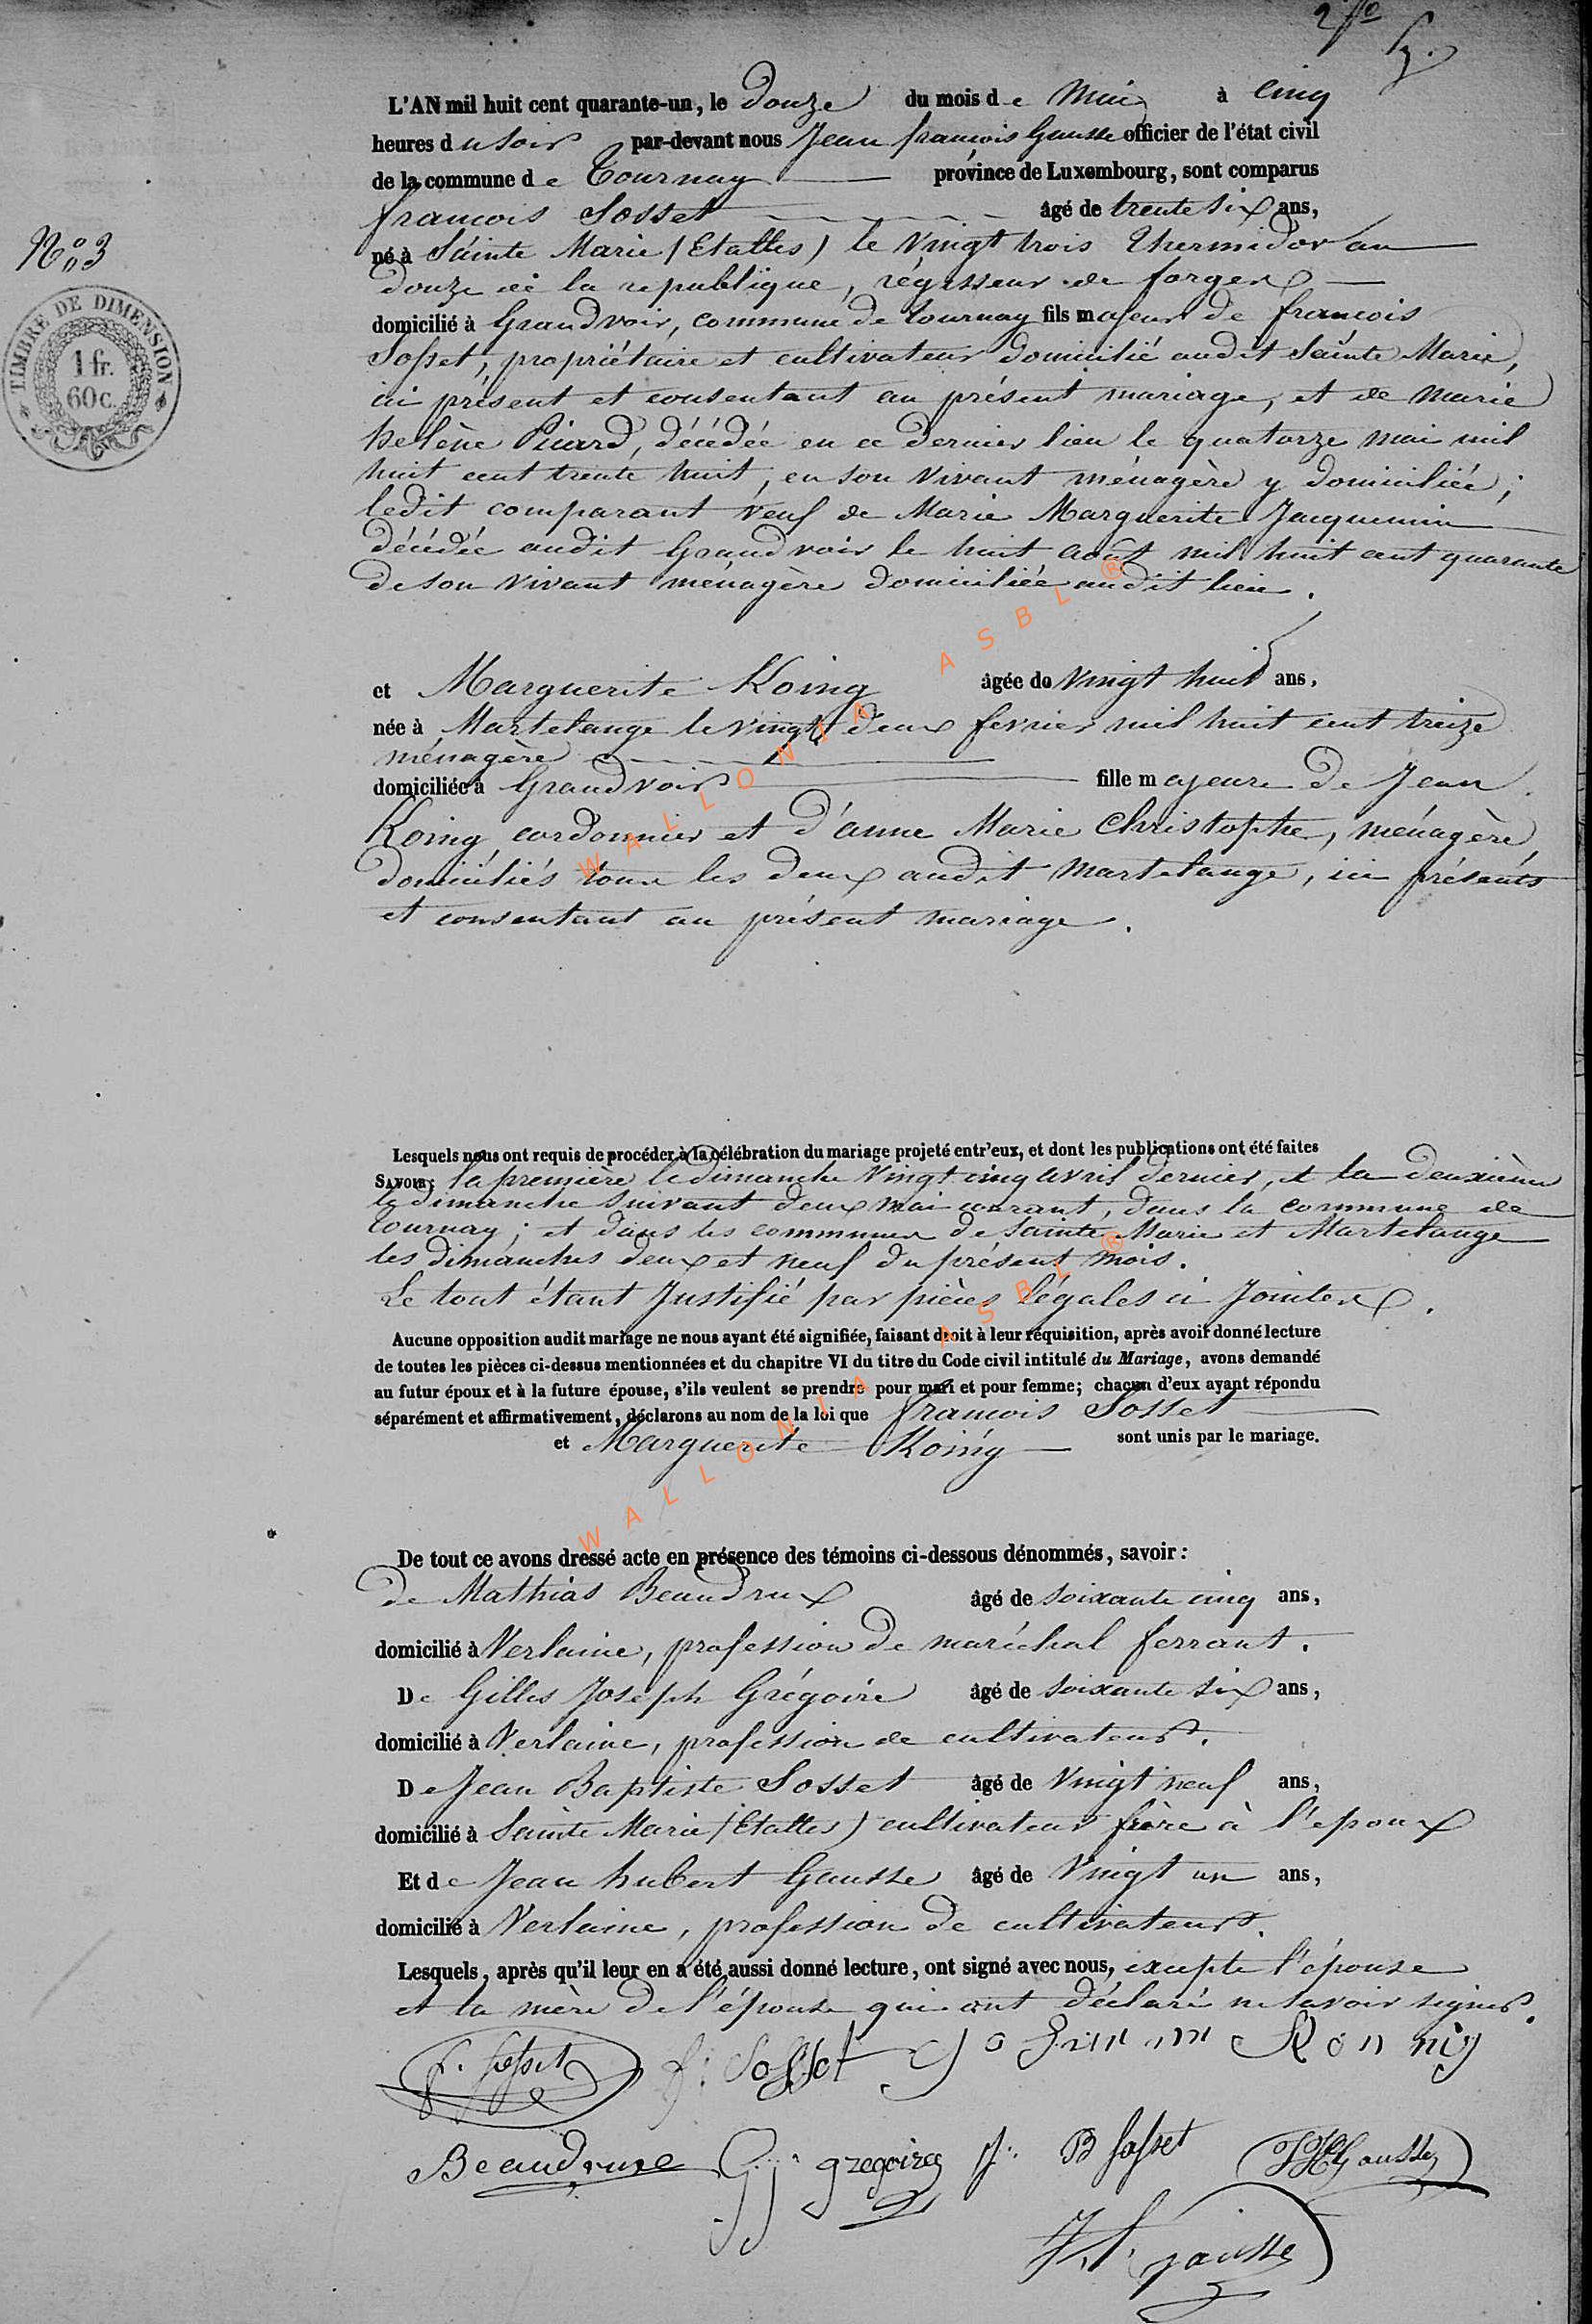 2 fo
L'AN mil huit cent quarante-un, le douze du mois de Mai à cinq
heures du soir par-devant nous Jean françois Gausse officier de l'état civil
de la commune de Tournay province de Luxembourg, sont comparus
françois Sosset âgé de trente six ans,
N° 3
né à Sainte Marie (Etalles) le vingt trois Thermidor an
douze de la republique, régisseur de forges
domicilié à Grandvoir, commune de tournay fils majeur de francois
Sosset, propriétaire et cultivateur domicilié audit Sainte Marie,
ici présent et consentant au présent mariage, et de marie
helène Picard, décédée en ce dernier lieu le quatorze mai mil
huit cent trente huit, en son vivant ménagère y domiciliée;
ledit comparant veuf de Marie Marguerite Jacquemin
décédée audit Grandvoir le huit août mil huit cent quarante
de son vivant ménagère domiciliée audit lieu.
TIMBRE DE DIMENSION
1 fr.
60 c.
et Marguerite Koing âgée de vingt huit ans,
née à Martelange le vingt deux fevrier mil huit cent treize
ménagère
domiciliée à Grandvoir fille majeure de Jean
Koing cordonnier et d'anne Marie Christophe, ménagère,
domiciliés tous les deux audit Martelange, ici présents
et consentant au présent mariage.
Lesquels nous ont requis de procéder à la célébration du mariage projeté entr'eux, et dont les publications ont été faites
SAVOIR: la première le dimanche vingt cinq avril dernier, et la deuxième
le dimanche suivant deux mai courant, dans la commune de
tournay; et dans les communes de Sainte Marie et Martelange
les dimanches deux et neuf du présent mois.
Le tout étant Justifié par pièces légales ci Jointes.
Aucune opposition audit mariage ne nous ayant été signifiée, faisant droit à leur réquisition, après avoir donné lecture
de toutes les pièces ci-dessus mentionnées et du chapitre VI du titre du Code civil intitulé du Mariage, avons demandé
au futur époux et à la future épouse, s'ils veulent se prendre pour mari et pour femme; chacun d'eux ayant répondu
séparément et affirmativement, déclarons au nom de la loi que francois Sosset
et Marguerite Koing sont unis par le mariage.
De tout ce avons dressé acte en présence des témoins ci-dessous dénommés, savoir:
de Mathias Beaudrux âgé de soixante cinq ans,
domicilié à Verlaine, profession de maréchal ferrant.
De Gilles Joseph Grégoire âgé de soixante six ans,
domicilié à Verlaine, profession de cultivateur.
De Jean Baptiste Sosset âgé de vingt neuf ans,
domicilié à Sainte Marie (Etalles) cultivateur frère à l'epoux
Et de Jean hubert Gausse âgé de vingt un ans,
domicilié à Verlaine, profession de cultivateur.
Lesquels, après qu'il leur en a été aussi donné lecture, ont signé avec nous, excepté l'épouse
et la mère de l'épouse qui ont déclaré ne savoir signer.
f. Sosset f: Sosset Johann Konnig
Beaudruxe G j gregoire J: B Sosset JHGausse
J.f. gausse
WALLONIA ASBL ®
WALLONIA ASBL ®